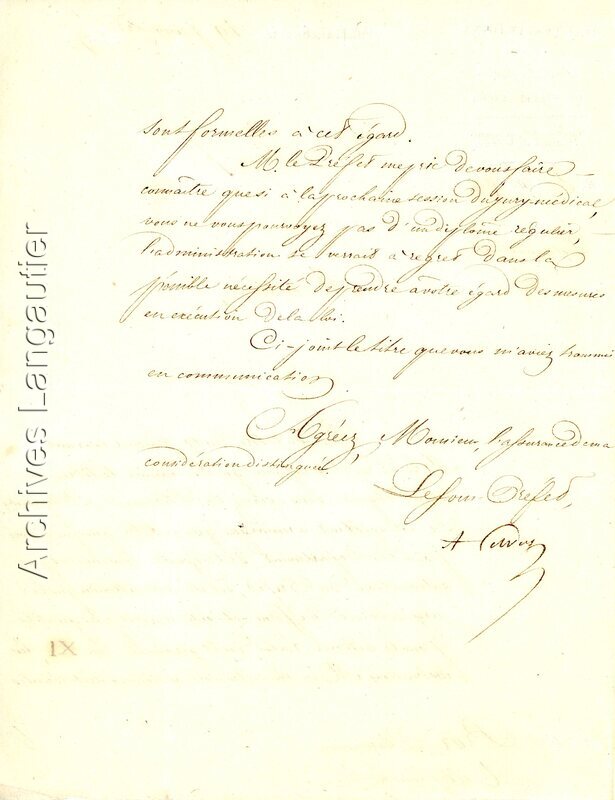 sont formelles à cet égard.
M. le Préfet me prie de vous faire
connaître que si à la prochaine session du jury médical,
vous ne vous pourvoyez pas d'un diplome régulier,
l'administration se verrait à regret dans la
pénible nécessité de prendre à votre égard des mesures
en exécution de la loi.
Ci-joint le titre que vous m'aviez transmis
en communication
Agréez, Monsieur, l'assurance de ma
considération distinguée.
Le Sous Préfet,
Archives Langautier
XI